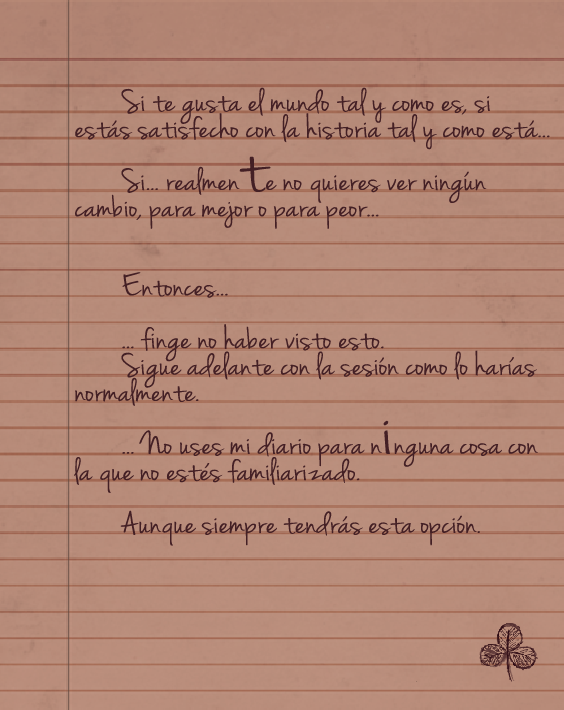 Si te gusta el mundo tal y como es, si
estás satisfecho con la historia tal y como está...
Si... realmente no quieres ver ningún
cambio, para mejor o para peor...
Entonces...
... finge no haber visto esto.
Sigue adelante con la sesión como lo harías
normalmente.
... No uses mi diario para ninguna cosa con
la que no estés familiarizado.
Aunque siempre tendrás esta opción.